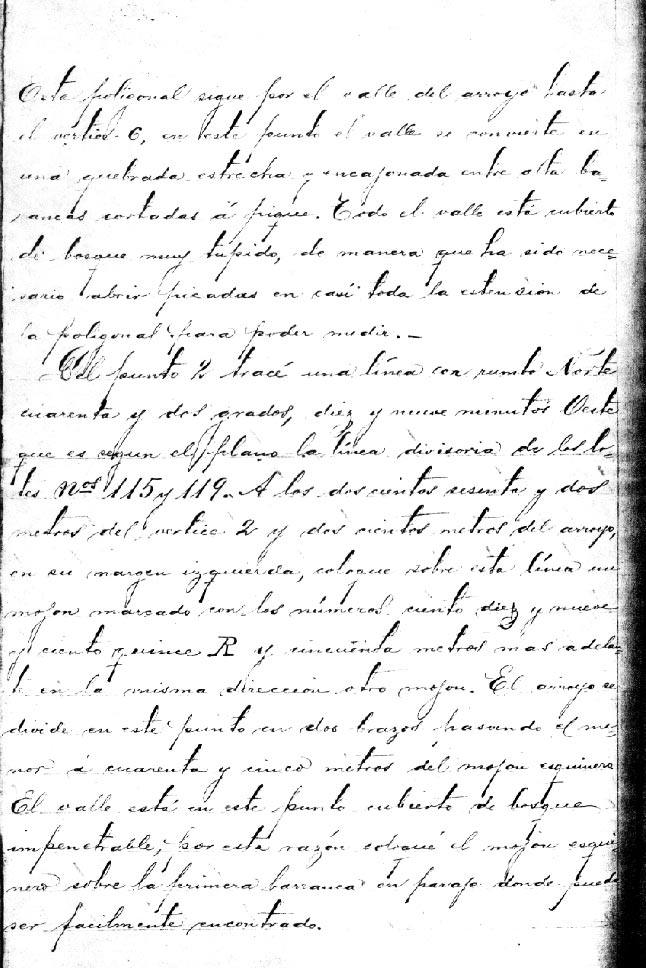 Esta poligonal sigue por el valle del arroyo hasta
el vertice 6, en este punto el valle se convierte en
una quebrada estrecha y encajonada entre alta ba-
rrancas cortadas á pique. Todo el valle está cubierto
de bosque muy tupido, de manera que ha sido nece-
sario abrir picadas en casi toda la estension de
la poligonal para poder medir. —
Del punto 2 tracé una línea con rumbo Norte
cuarenta y dos grados, diez y nueve minutos Oeste
que es segun el plano la línea divisoria de los lo-
tes Nos 115 y 119. A los doscientos sesenta y dos
metros del vertice 2 y dos cientos metros del arroyo,
en su margen izquierda, coloque sobre esta línea un
mojon marcado con los números ciento diez y nueve
y ciento quince R y cincuenta metros mas adelan-
te en la misma dirección otro mojon. El arroyo se
divide en este punto en dos brazos, pasando el me-
nor á cuarenta y cinco metros del mojon esquinero
El valle está en este punto cubierto de bosque
impenetrable; por esta razón coloqué el mojon esqui-
nero sobre la primera barranca en paraje donde puede
ser facilmente encontrado.